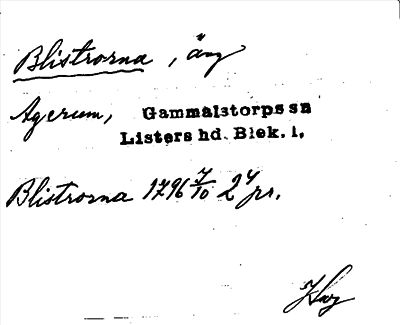 Blistrorna, äng
Agerum, Gammalstorps sn
Listers hd. Blek. l.
Blistrorna 1796 7/10